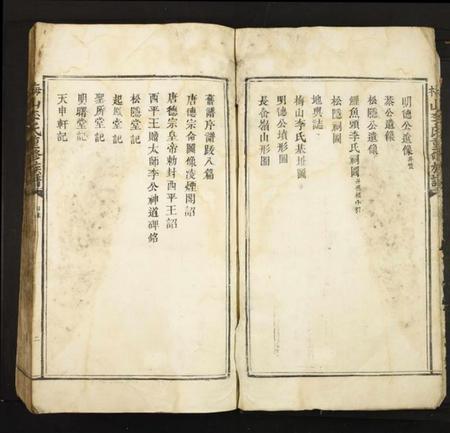 明德公遺像
桒公遺像
松隱公遺像
鯉魚頭李氏祠圖
松隱祠圖
地輿誌
梅山李氏基址圖
明德公墳形圖
長命嶺山形圖
舊譜序譜跋八篇
唐德宗命圖像凌煙閣詔
唐德宗皇帝勅封西平王詔
西平王贈太師李公神道碑銘
松隱堂記
起照堂記
聖所堂記
明曙堂記
天申軒記